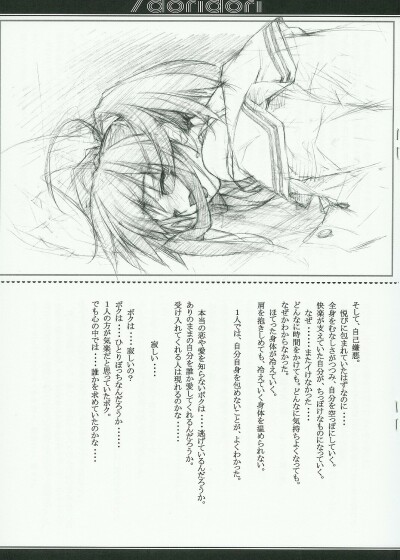 /doridori
そして、自己嫌悪。
悦びに包まれていたはずなのに‥‥
全身をむなしさがつつみ、自分を空っぽにしていく。
快楽が支えていた自分が、ちっぽけなものになっていく。
なぜ‥‥‥またイけなかった‥‥
どんなに時間をかけても。どんなに気持ちよくなっても。
なぜかわからなかった。
ほてった身体が冷えていく。
肩を抱きしめても、冷えていく身体を温められない。
1人では、自分自身を包めないことが、よくわかった。
本当の恋や愛を知らないボクは‥‥逃げているんだろうか。
ありのままの自分を誰か愛してくれるんだろうか。
受け入れてくれる人は現れるのかな‥‥‥
寂しい‥‥
ボクは‥‥寂しいの？
ボクは‥‥ひとりぼっちなんだろうか‥‥‥
1人の方が気楽だと思っていたボク。
でも心の中では‥‥誰かを求めていたのかな‥‥